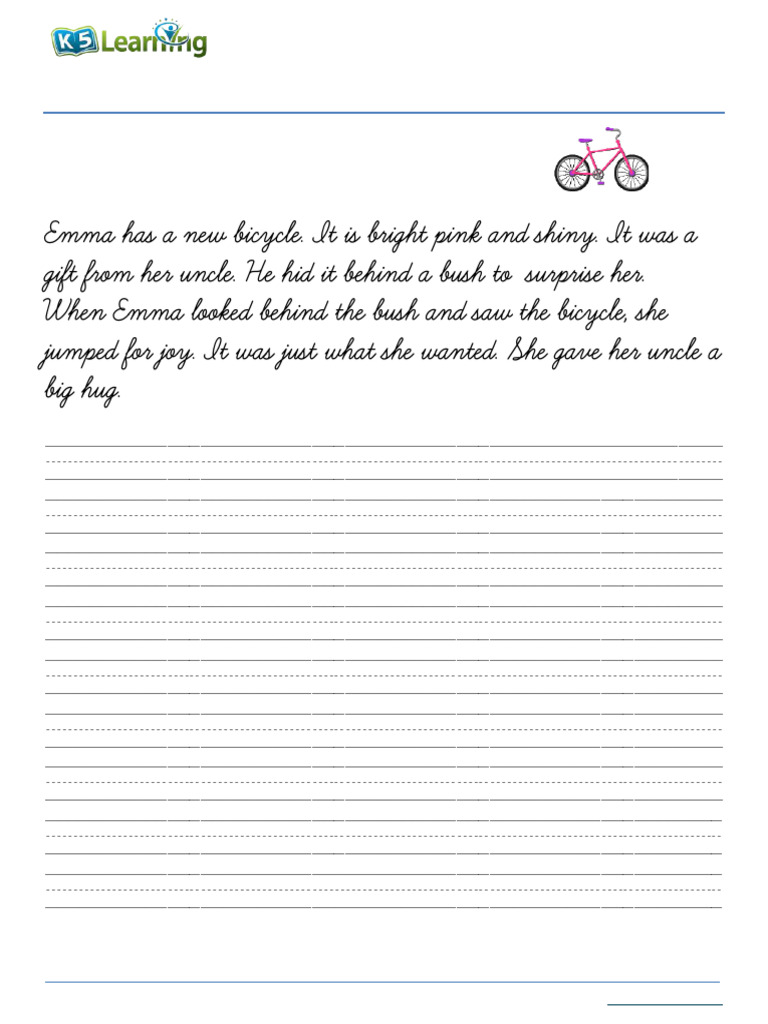 K5 Learning
Emma has a new bicycle. It is bright pink and shiny. It was a
gift from her uncle. He hid it behind a bush to surprise her.
When Emma looked behind the bush and saw the bicycle, she
jumped for joy. It was just what she wanted. She gave her uncle a
big hug.